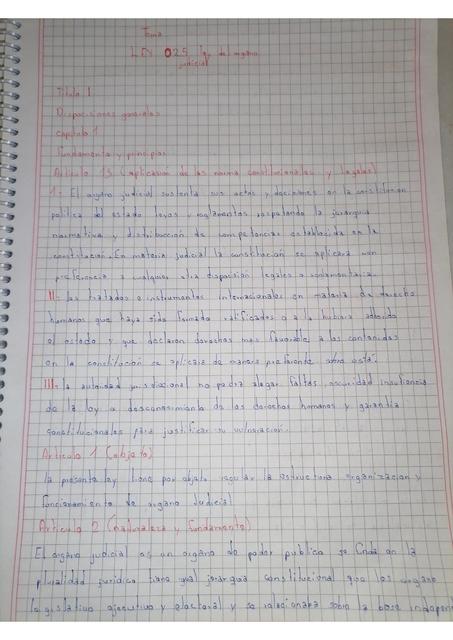 Tema
LEY 025 ley de organo
judicial
Titulo 1
Disposiciones generales
Capitulo 1
Fundamento y principios
Articulo 15 (aplicacion de las norma constitucionales y legales)
I: El organo judicial sustenta sus actos y decisiones en la constitucion
politica del estado leyes y reglamentos respetando la jerarquia
normativa y distribucion de competencias establecida en la
constitucion. En materia judicial la constitucion se aplicara con
preferencia a cualquier otra disposision legales o reglamentaria.
II: Los tratados e instrumentos internacionales en materia de derecho
humanos que haya sido firmado ratificados o a la hubiera
el estado y que declaren derechos mas favorable a las contenidas
en la constitución se aplicara de manera preferente sobre esta.
III: la autoridad jurisdiccional no podra alegar faltas, oscuridad insufiencia
de la ley o desconosimiento de los derechos humanos y garantia
constitucionales para justificar su vulneracion.
Articulo 1 (objeto)
la presente ley tiene por objeto regular la estructura organizacion y
funcionamiento de organo Judicial
Articulo 2 (naturaleza y fundamento)
El órgano judicial es un organo de poder publico se funda en la
pluralidad juridica tiene igual jerarquia constitucional que los organo
legislativo ejecutivo y electoral y se relacionara sobre la base